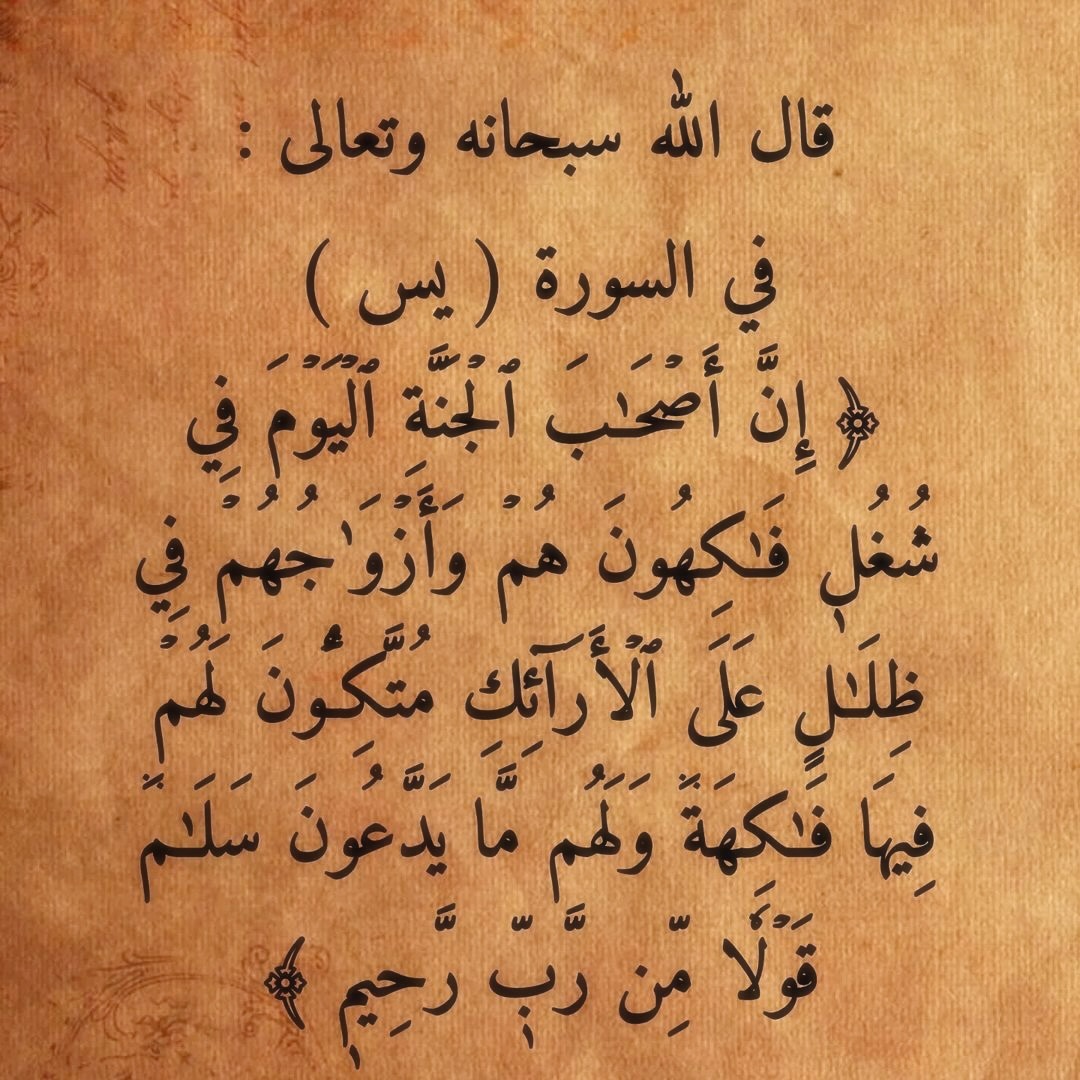 قال الله سبحانه وتعالى :
في السورة ( يس )
﴿ إِنَّ أَصْحَـٰبَ ٱلْجَنَّةِ ٱلْيَوْمَ فِي
شُغُلٍ فَـٰكِهُونَ هُمْ وَأَزْوَٰجُهُمْ فِي
ظِلَـٰلٍ عَلَى ٱلْأَرَآئِكِ مُتَّكِـُٔونَ لَهُمْ
فِيهَا فَـٰكِهَةٌ وَلَهُم مَّا يَدَّعُونَ سَلَـٰمٌ
قَوْلًا مِّن رَّبٍّ رَّحِيمٍ ﴾